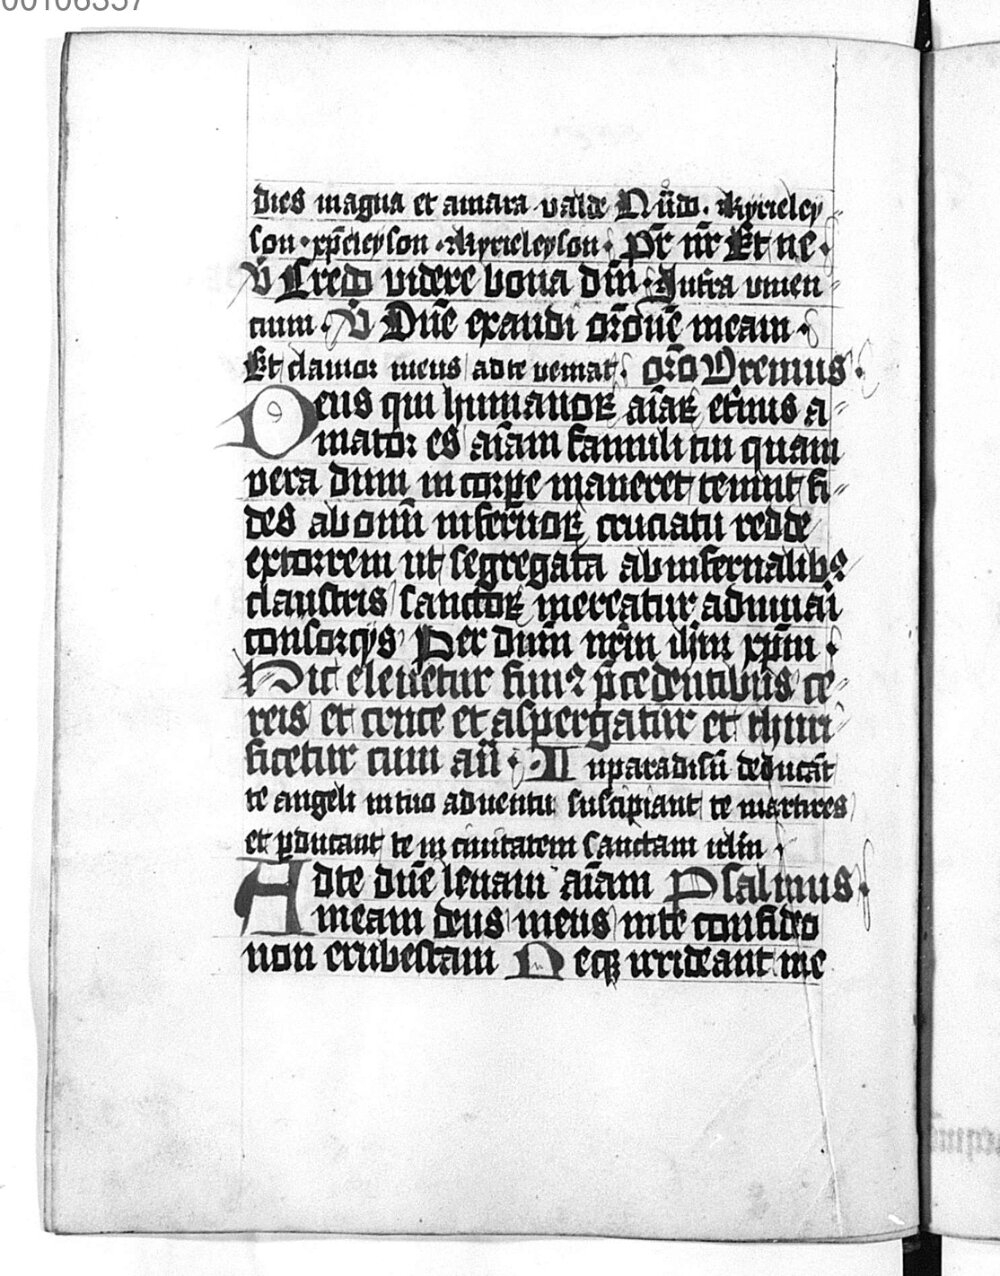 00106357
dies magna et amara valde Nūdo. Kyrieley
son · xp̄eleyson · Kyrieleyson · Pr̄ nr̄ Et ne ·
V Credo videre bona dn̄i · In terra viuen
cium · V Dn̄e exaudi or̄onē meam ·
Et clamor meus ad te veniat. or̄o Oremus ·
Deus qui humanoꝝ aīaꝝ et̄nus a
mator es aīam famuli tui quam
vera dum in corpe maneret tenuit fi
des ab om̄i infernoꝝ cruciatu redde
extorrem ut segregata ab infernalibꝰ
claustris sanctoꝝ mereatur adunari
consorcijs Per dn̄m nr̄m ih̄m xp̄m ·
Hic eleuetur funꝰ p̄cedentibus ce
reis et cruce et aspergatur et thuri
ficetur cum an̄ · In paradisū deducāt
te angeli in tuo aduentu suscipiant te martires
et pducant te in ciuitatem sanctam irlm̄
Ad te dn̄e leuaui aīam Psalmus
meam deus meus in te confido
non erubescam Neqꝫ irrideant me